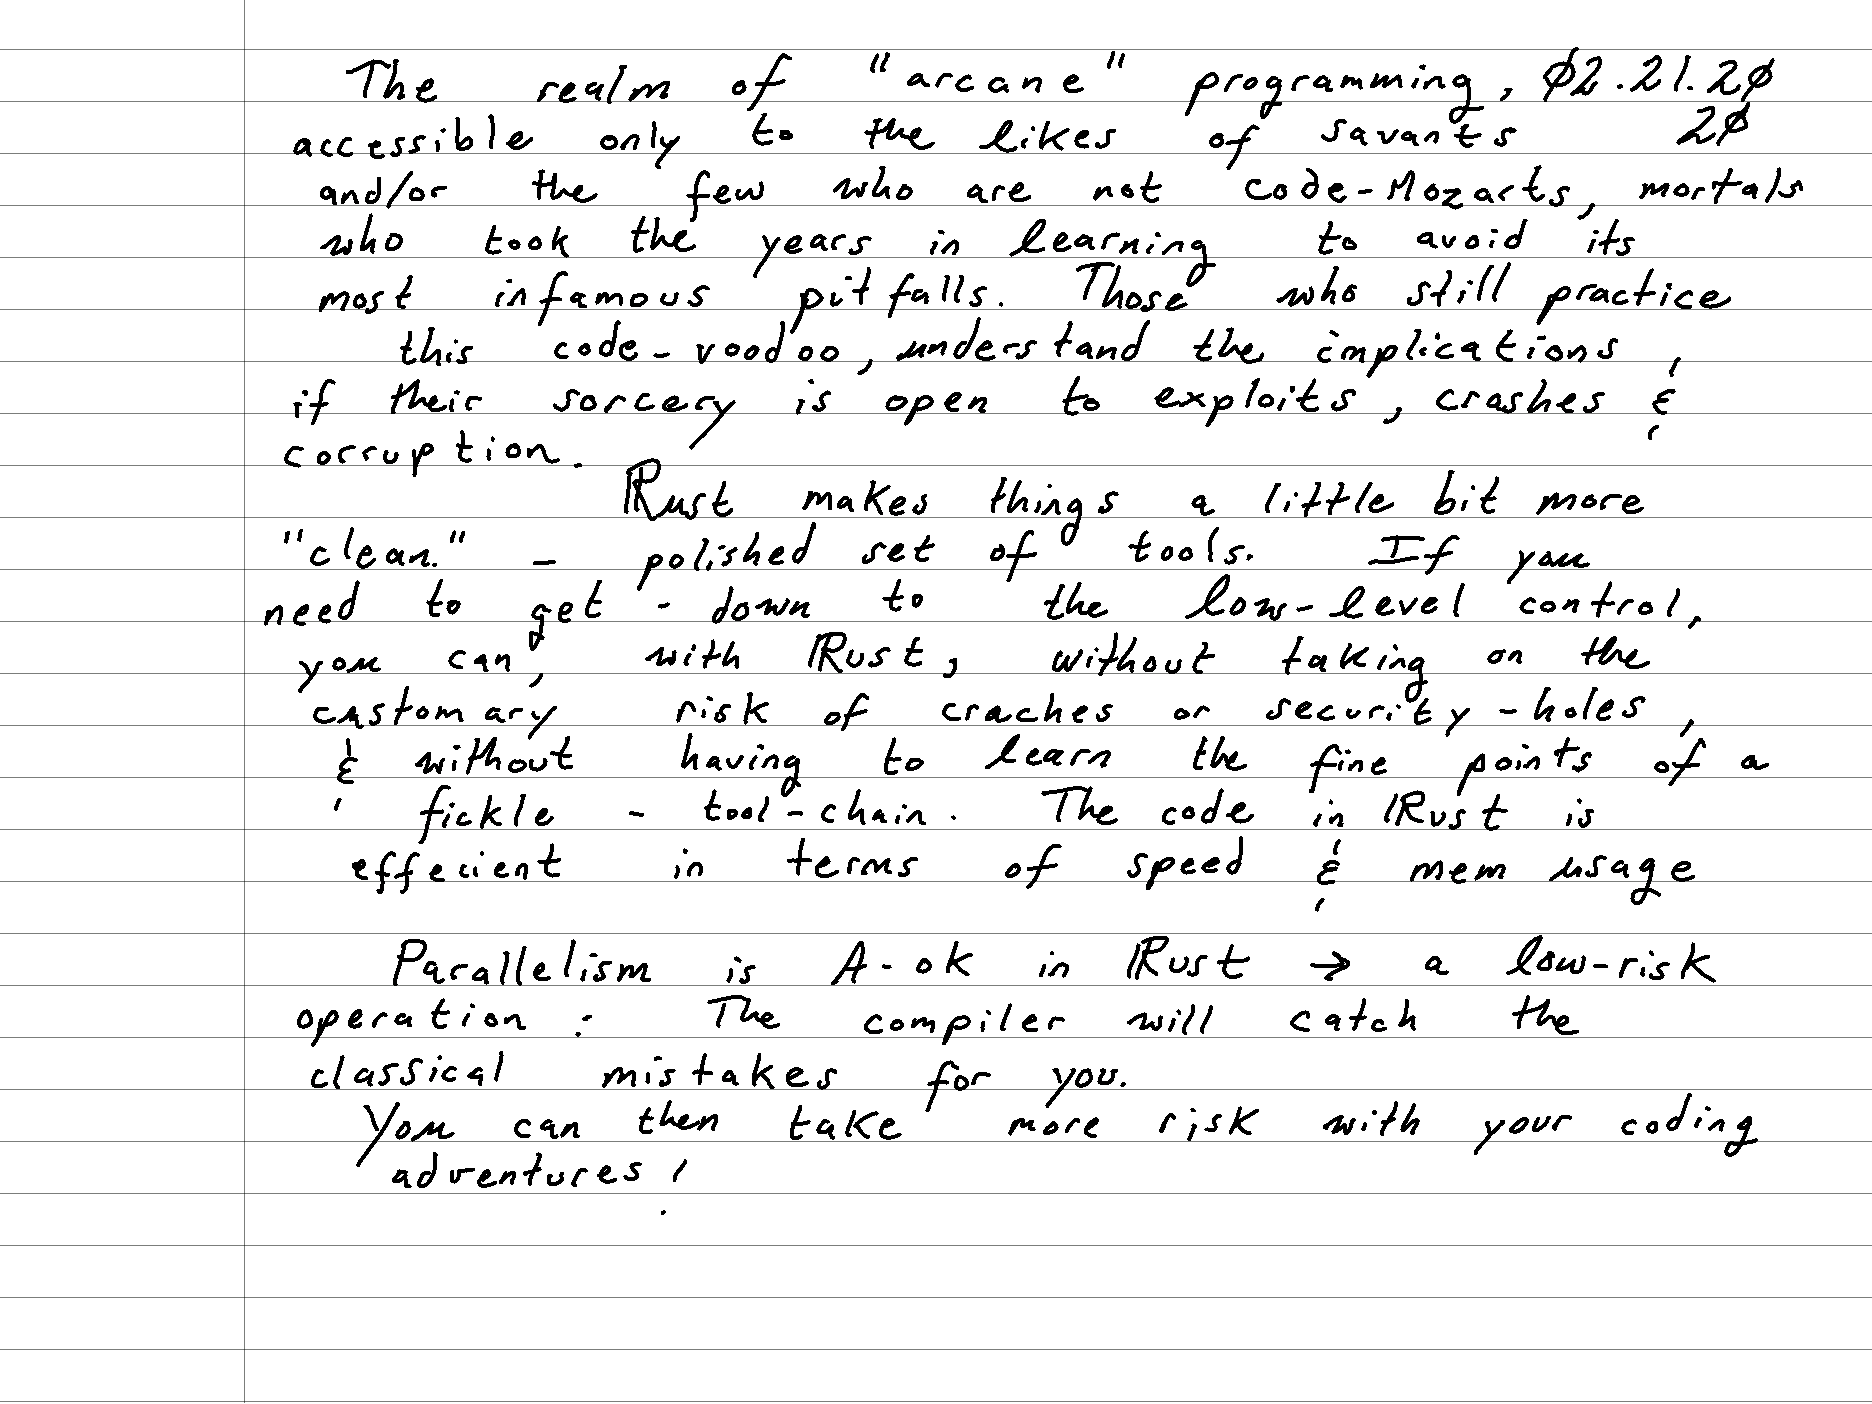 The realm of "arcane" programming, 02.21.20
accessible only to the likes of savants 20
and/or the few who are not code-Mozarts, mortals
who took the years in learning to avoid its
most infamous pitfalls. Those who still practice
this code-voodoo, understand the implications,
if their sorcery is open to exploits, crashes &
corruption.
Rust makes things a little bit more
"clean." - polished set of tools. If you
need to get-down to the low-level control,
you can, with Rust, without taking on the
customary risk of craches or security-holes,
& without having to learn the fine points of a
fickle - tool-chain. The code in Rust is
effecient in terms of speed & mem usage
Parallelism is A-ok in Rust → a low-risk
operation: The compiler will catch the
classical mistakes for you.
You can then take more risk with your coding
adventures!